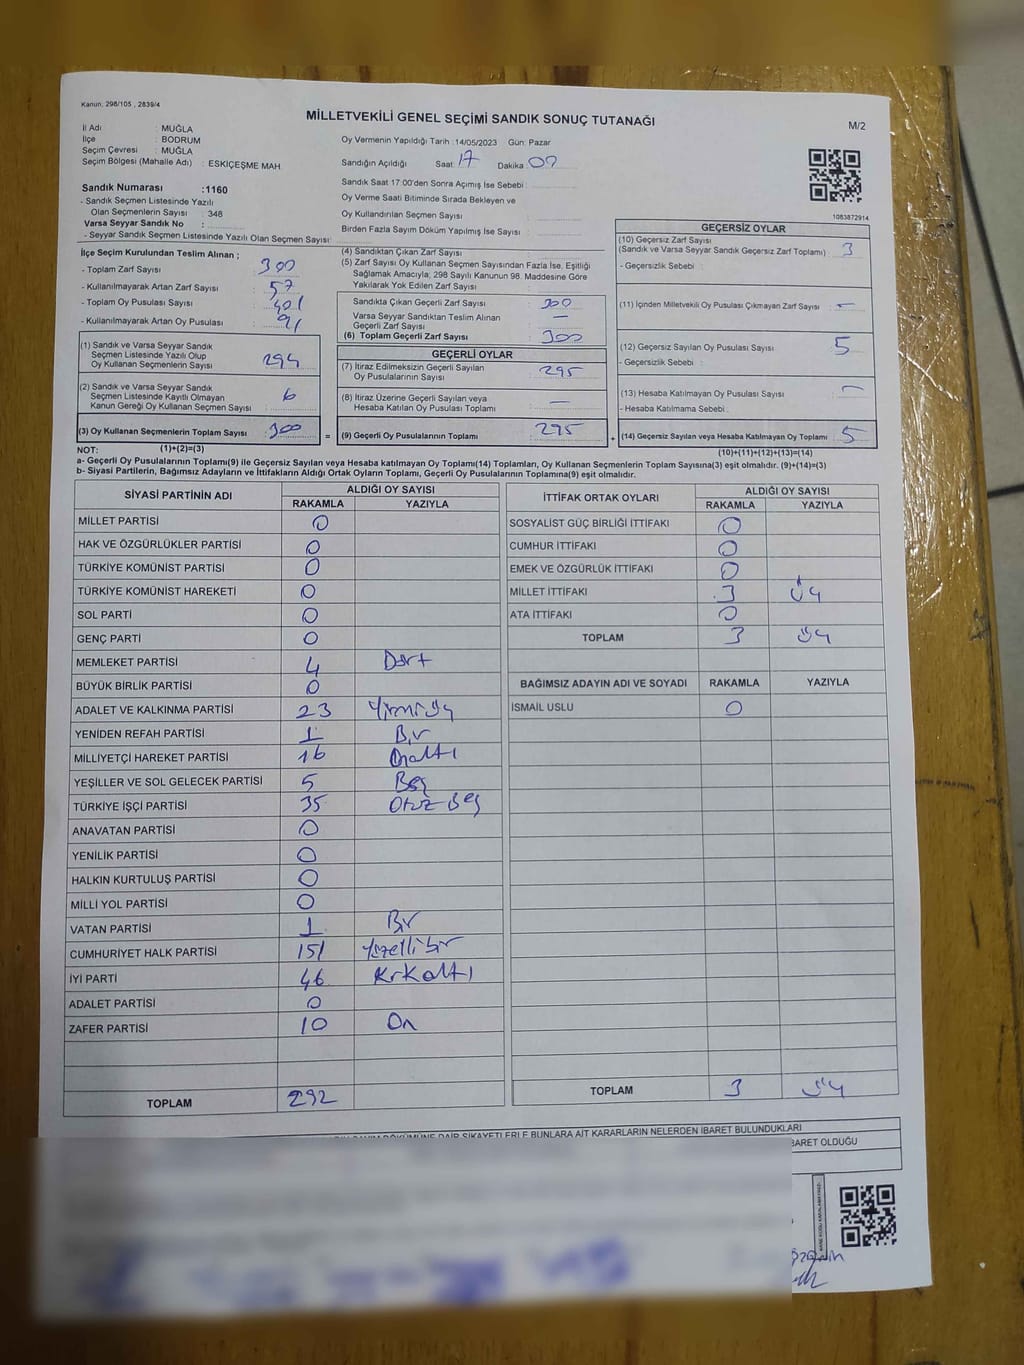 Kanun: 298/105 , 2839/4
MİLLETVEKİLİ GENEL SEÇİMİ SANDIK SONUÇ TUTANAĞI
M/2
İl Adı : MUĞLA
İlçe : BODRUM
Seçim Çevresi : MUĞLA
Seçim Bölgesi (Mahalle Adı) : ESKİÇEŞME MAH
Oy Vermenin Yapıldığı Tarih :14/05/2023 Gün: Pazar
Sandığın Açıldığı Saat : 17 Dakika : 07
Sandık Saat 17:00'den Sonra Açımış İse Sebebi :
Oy Verme Saati Bitiminde Sırada Bekleyen ve
Oy Kullandırılan Seçmen Sayısı :
Birden Fazla Sayım Döküm Yapılmış İse Sayısı :
Sandık Numarası :1160
- Sandık Seçmen Listesinde Yazılı
Olan Seçmenlerin Sayısı : 348
Varsa Seyyar Sandık No :
- Seyyar Sandık Seçmen Listesinde Yazılı Olan Seçmen Sayısı:
1083872914
İlçe Seçim Kurulundan Teslim Alınan ;
- Toplam Zarf Sayısı : 300
- Kullanılmayarak Artan Zarf Sayısı : 57
- Toplam Oy Pusulası Sayısı : 401
- Kullanılmayarak Artan Oy Pusulası : 91
(1) Sandık ve Varsa Seyyar Sandık
Seçmen Listesinde Yazılı Olup
Oy Kullanan Seçmenlerin Sayısı : 294
(2) Sandık ve Varsa Seyyar Sandık
Seçmen Listesinde Kayıtlı Olmayan
Kanun Gereği Oy Kullanan Seçmen Sayısı : 6
(3) Oy Kullanan Seçmenlerin Toplam Sayısı : 300
(1)+(2)=(3)
(4) Sandıktan Çıkan Zarf Sayısı :
(5) Zarf Sayısı Oy Kullanan Seçmen Sayısından Fazla İse, Eşitliği
Sağlamak Amacıyla; 298 Sayılı Kanunun 98. Maddesine Göre
Yakılarak Yok Edilen Zarf Sayısı :
Sandıkta Çıkan Geçerli Zarf Sayısı : 300
Varsa Seyyar Sandıktan Teslim Alınan
Geçerli Zarf Sayısı : —
(6) Toplam Geçerli Zarf Sayısı : 300
GEÇERLİ OYLAR
(7) İtiraz Edilmeksizin Geçerli Sayılan
Oy Pusulalarının Sayısı : 295
(8) İtiraz Üzerine Geçerli Sayılan veya
Hesaba Katılan Oy Pusulası Toplamı : —
= (9) Geçerli Oy Pusulalarının Toplamı : 295
GEÇERSİZ OYLAR
(10) Geçersiz Zarf Sayısı
(Sandık ve Varsa Seyyar Sandık Geçersiz Zarf Toplamı) : 3
- Geçersizlik Sebebi :
(11) İçinden Milletvekili Oy Pusulası Çıkmayan Zarf Sayısı : —
(12) Geçersiz Sayılan Oy Pusulası Sayısı : 5
- Geçersizlik Sebebi :
(13) Hesaba Katılmayan Oy Pusulası Sayısı : —
- Hesaba Katılmama Sebebi :
+ (14) Geçersiz Sayılan veya Hesaba Katılmayan Oy Toplamı : 5
(10)+(11)+(12)+(13)=(14)
NOT:
a- Geçerli Oy Pusulalarının Toplamı(9) ile Geçersiz Sayılan veya Hesaba katılmayan Oy Toplamı(14) Toplamları, Oy Kullanan Seçmenlerin Toplam Sayısına(3) eşit olmalıdır. (9)+(14)=(3)
b- Siyasi Partilerin, Bağımsız Adayların ve İttifakların Aldığı Ortak Oyların Toplamı, Geçerli Oy Pusulalarının Toplamına(9) eşit olmalıdır.
SİYASİ PARTİNİN ADI ALDIĞI OY SAYISI
RAKAMLA YAZIYLA
MİLLET PARTİSİ 0
HAK VE ÖZGÜRLÜKLER PARTİSİ 0
TÜRKİYE KOMÜNİST PARTİSİ 0
TÜRKİYE KOMÜNİST HAREKETİ 0
SOL PARTİ 0
GENÇ PARTİ 0
MEMLEKET PARTİSİ 4 Dört
BÜYÜK BİRLİK PARTİSİ 0
ADALET VE KALKINMA PARTİSİ 23 Yirmi üç
YENİDEN REFAH PARTİSİ 1 Bir
MİLLİYETÇİ HAREKET PARTİSİ 16 Onaltı
YEŞİLLER VE SOL GELECEK PARTİSİ 5 Beş
TÜRKİYE İŞÇİ PARTİSİ 35 Otuz Beş
ANAVATAN PARTİSİ 0
YENİLİK PARTİSİ 0
HALKIN KURTULUŞ PARTİSİ 0
MİLLİ YOL PARTİSİ 0
VATAN PARTİSİ 1 Bir
CUMHURİYET HALK PARTİSİ 151 Yüzellibir
İYİ PARTİ 46 Kırkaltı
ADALET PARTİSİ 0
ZAFER PARTİSİ 10 On
TOPLAM 292
İTTİFAK ORTAK OYLARI ALDIĞI OY SAYISI
RAKAMLA YAZIYLA
SOSYALİST GÜÇ BİRLİĞİ İTTİFAKI 0
CUMHUR İTTİFAKI 0
EMEK VE ÖZGÜRLÜK İTTİFAKI 0
MİLLET İTTİFAKI 3 üç
ATA İTTİFAKI 0
TOPLAM 3 üç
BAĞIMSIZ ADAYIN ADI VE SOYADI RAKAMLA YAZIYLA
İSMAİL USLU 0
TOPLAM 3 üç
DÖKÜMÜNE DAİR ŞİKAYETLERLE BUNLARA AİT KARARLARIN NELERDEN İBARET BULUNDUKLARI
İBARET OLDUĞU